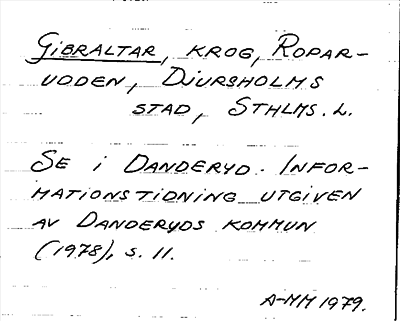 GIBRALTAR, KROG, ROPAR-
UDDEN, DJURSHOLMS
STAD, STHLMS. L.
SE I DANDERYD. INFOR-
MATIONSTIDNING UTGIVEN
AV DANDERYDS KOMMUN
(1978), S. 11.
A-MM 1979.